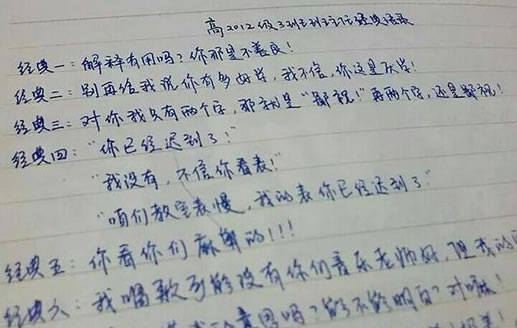 高2012级3班班主任经典语录
经典一：解释有用吗？你那是不善良！
经典二：别再给我说你有多好
经典三：对你我只有两个字，那就是“鄙视！”再两个字，还是鄙视！
经典四：“你已经迟到了！”
“我没有，不信你看表！”
“咱们教室表慢，我的表你已经迟到了”
经典五：你看你们麻
经典六：我唱歌可能没有你们音乐老师好，但我的
意思吗？能不能明白？对嘛！